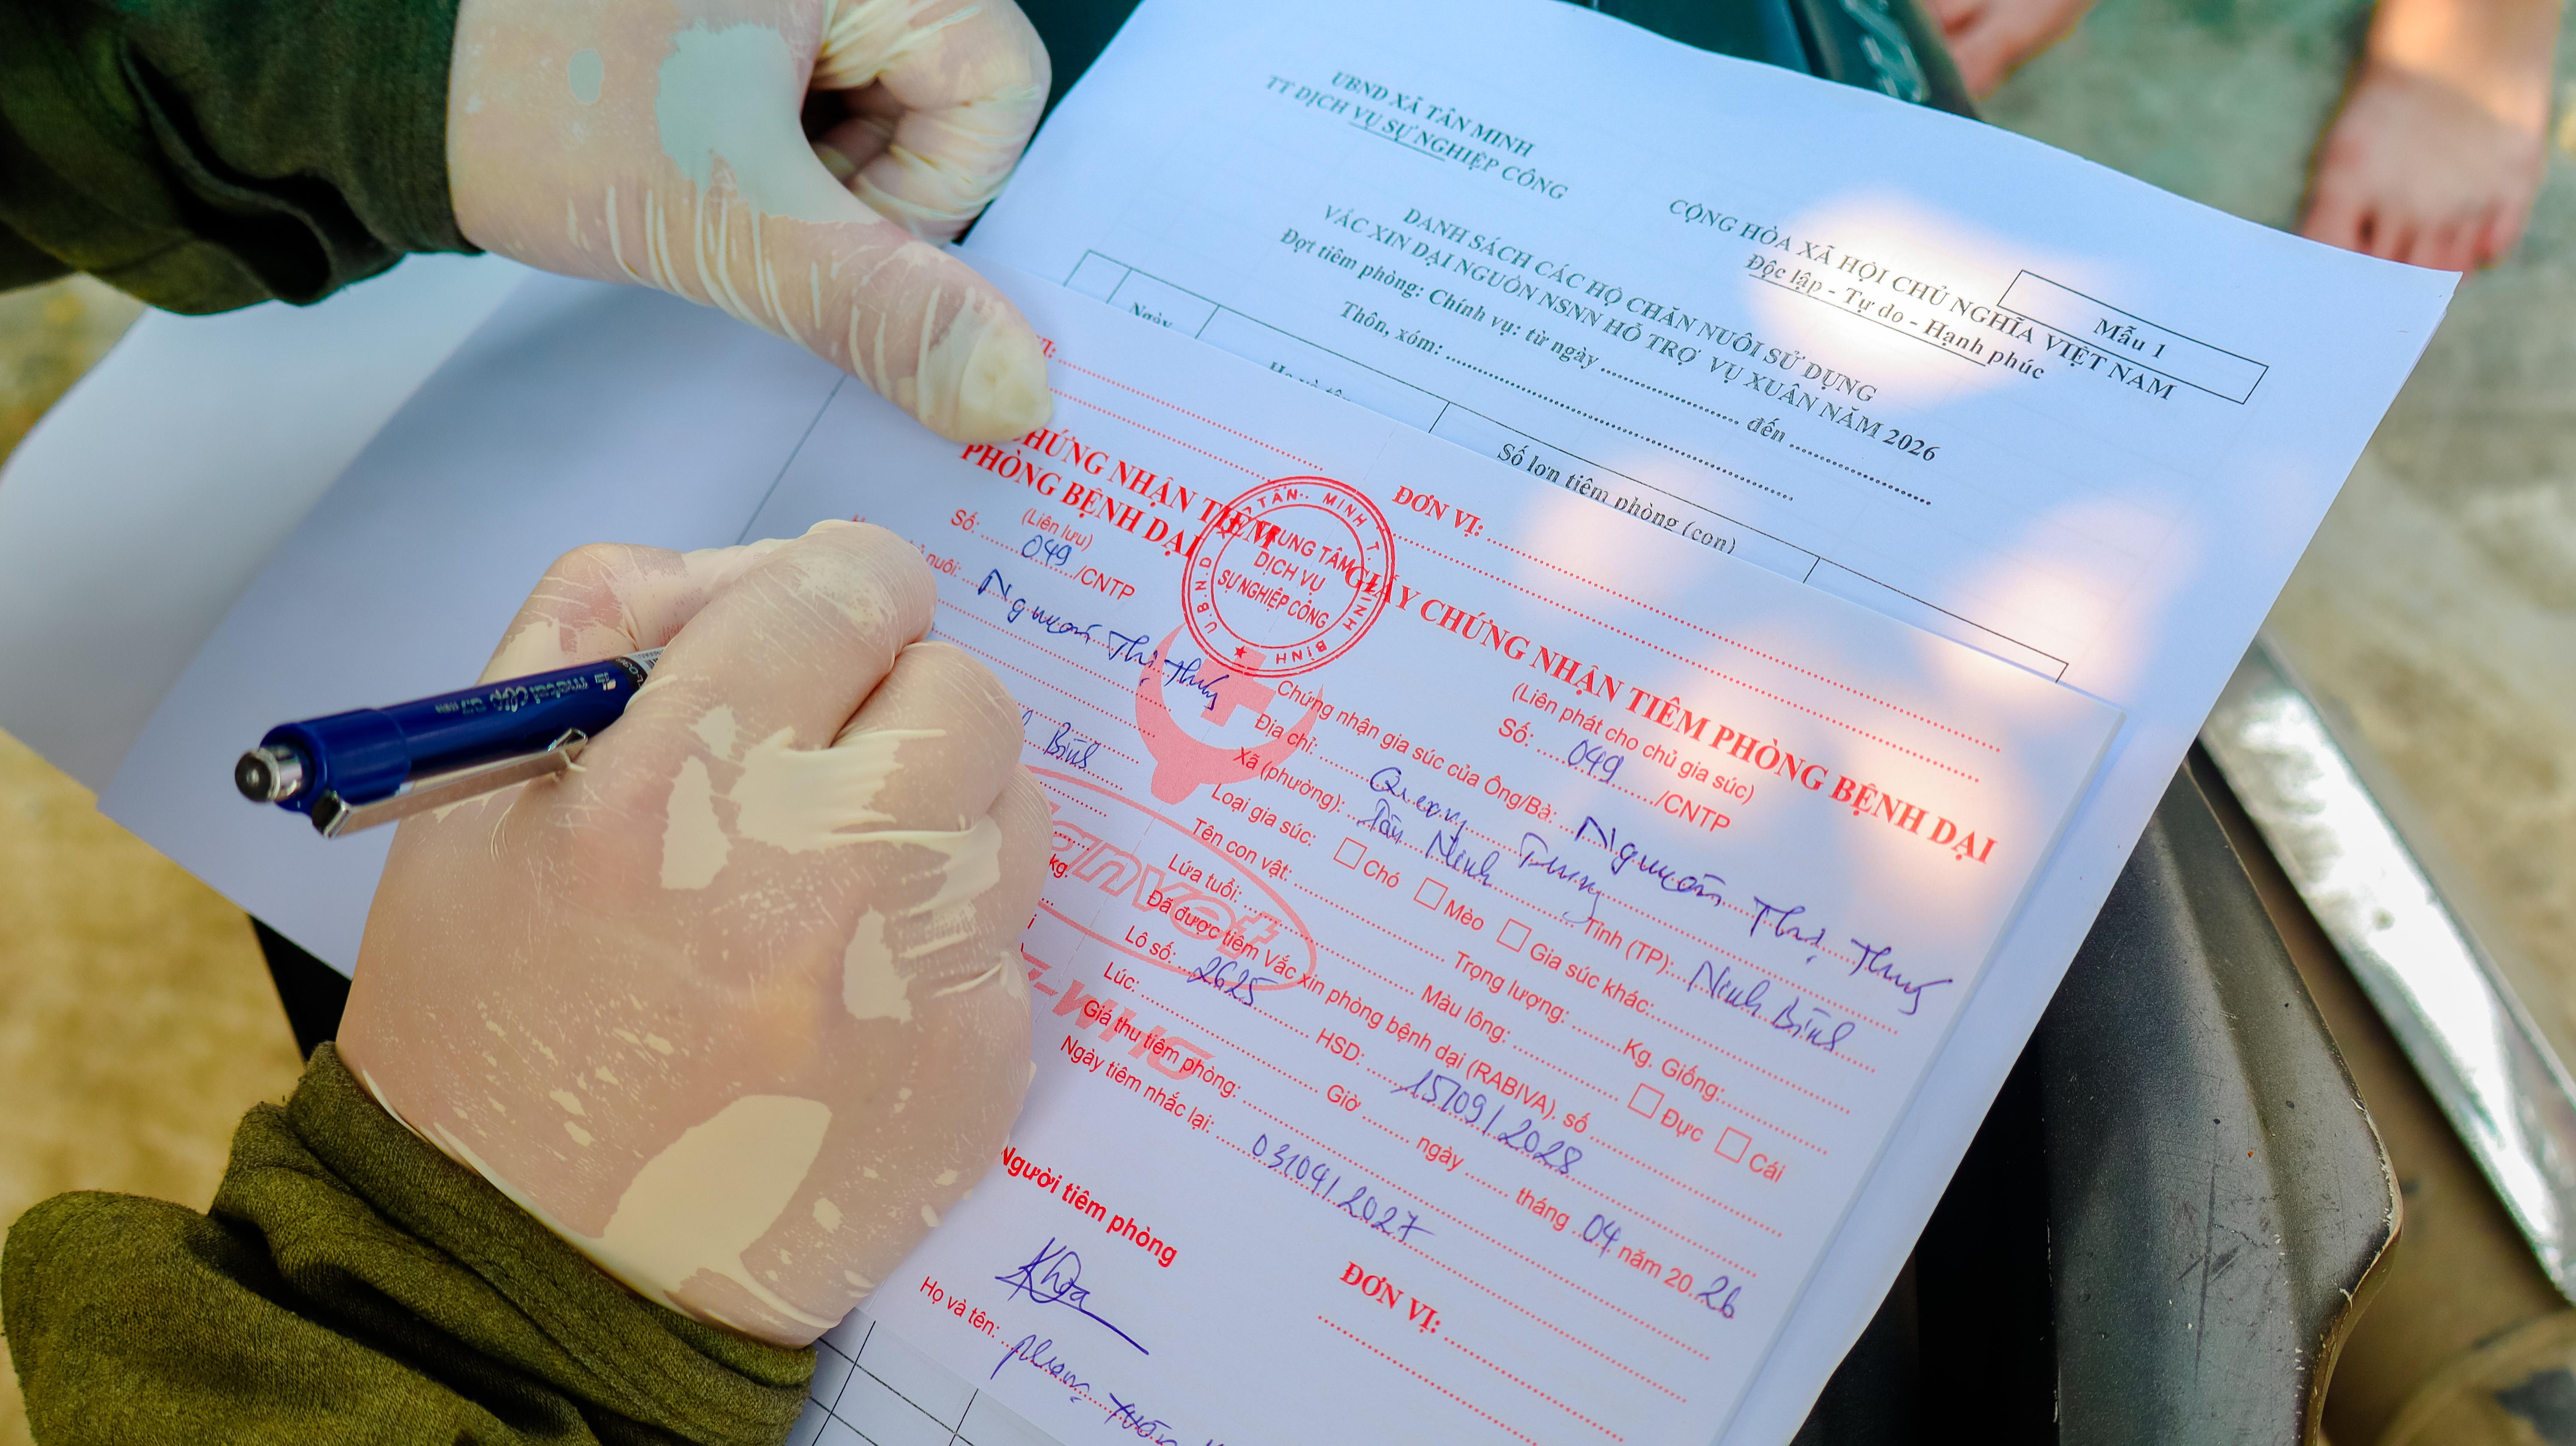 UBND XÃ TÂN MINH
TT DỊCH VỤ SỰ NGHIỆP CÔNG
CỘNG HÒA XÃ HỘI CHỦ NGHĨA VIỆT NAM
Độc lập - Tự do - Hạnh phúc
Mẫu 1
DANH SÁCH CÁC HỘ CHĂN NUÔI SỬ DỤNG
VẮC XIN DẠI NGUỒN NSNN HỖ TRỢ VỤ XUÂN NĂM 2026
Đợt tiêm phòng: Chính vụ: từ ngày ........ đến ........
Thôn, xóm: ........
Ngày
Số lợn tiêm phòng (con)
CHỨNG NHẬN TIÊM
PHÒNG BỆNH DẠI
(Liên lưu)
Số: 049 /CNTP
nuôi: Nguyễn Thị Thuỷ
Bình
kg.
TÂN MINH T. NINH BÌNH
U.B.N.D
TRUNG TÂM
DỊCH VỤ
SỰ NGHIỆP CÔNG
ĐƠN VỊ: ........
GIẤY CHỨNG NHẬN TIÊM PHÒNG BỆNH DẠI
(Liên phát cho chủ gia súc)
Số: 049 /CNTP
Chứng nhận gia súc của Ông/Bà: Nguyễn Thị Thuỷ
Địa chỉ: Quang Trung
Xã (phường): Tân Minh Tỉnh (TP): Ninh Bình
Loại gia súc: Chó Mèo Gia súc khác: ........
Tên con vật: ........ Trọng lượng: ........ Kg. Giống: ........
Lứa tuổi: ........ Màu lông: ........ Đực Cái
Đã được tiêm Vắc xin phòng bệnh dại (RABIVA). số ........
Lô số: 2625 HSD: 15/09/2028
Lúc: ........ Giờ ........ ngày ........ tháng 04 năm 20 26
Giá thu tiêm phòng: ........
Ngày tiêm nhắc lại: 03/04/2027
anvet
Người tiêm phòng
Khoa
Họ và tên:
ĐƠN VỊ: ........